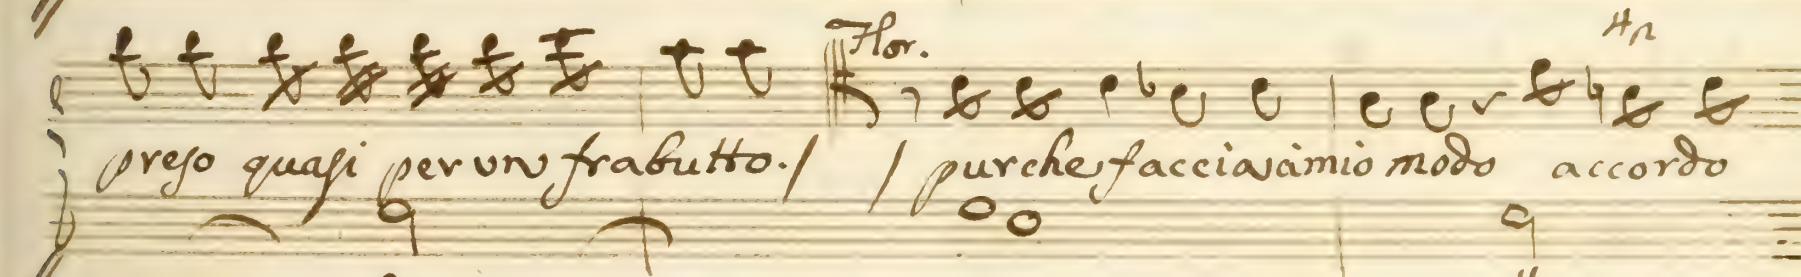 Flor.
preso quasi per un frabutto. / / purche faccia à mio modo accordo